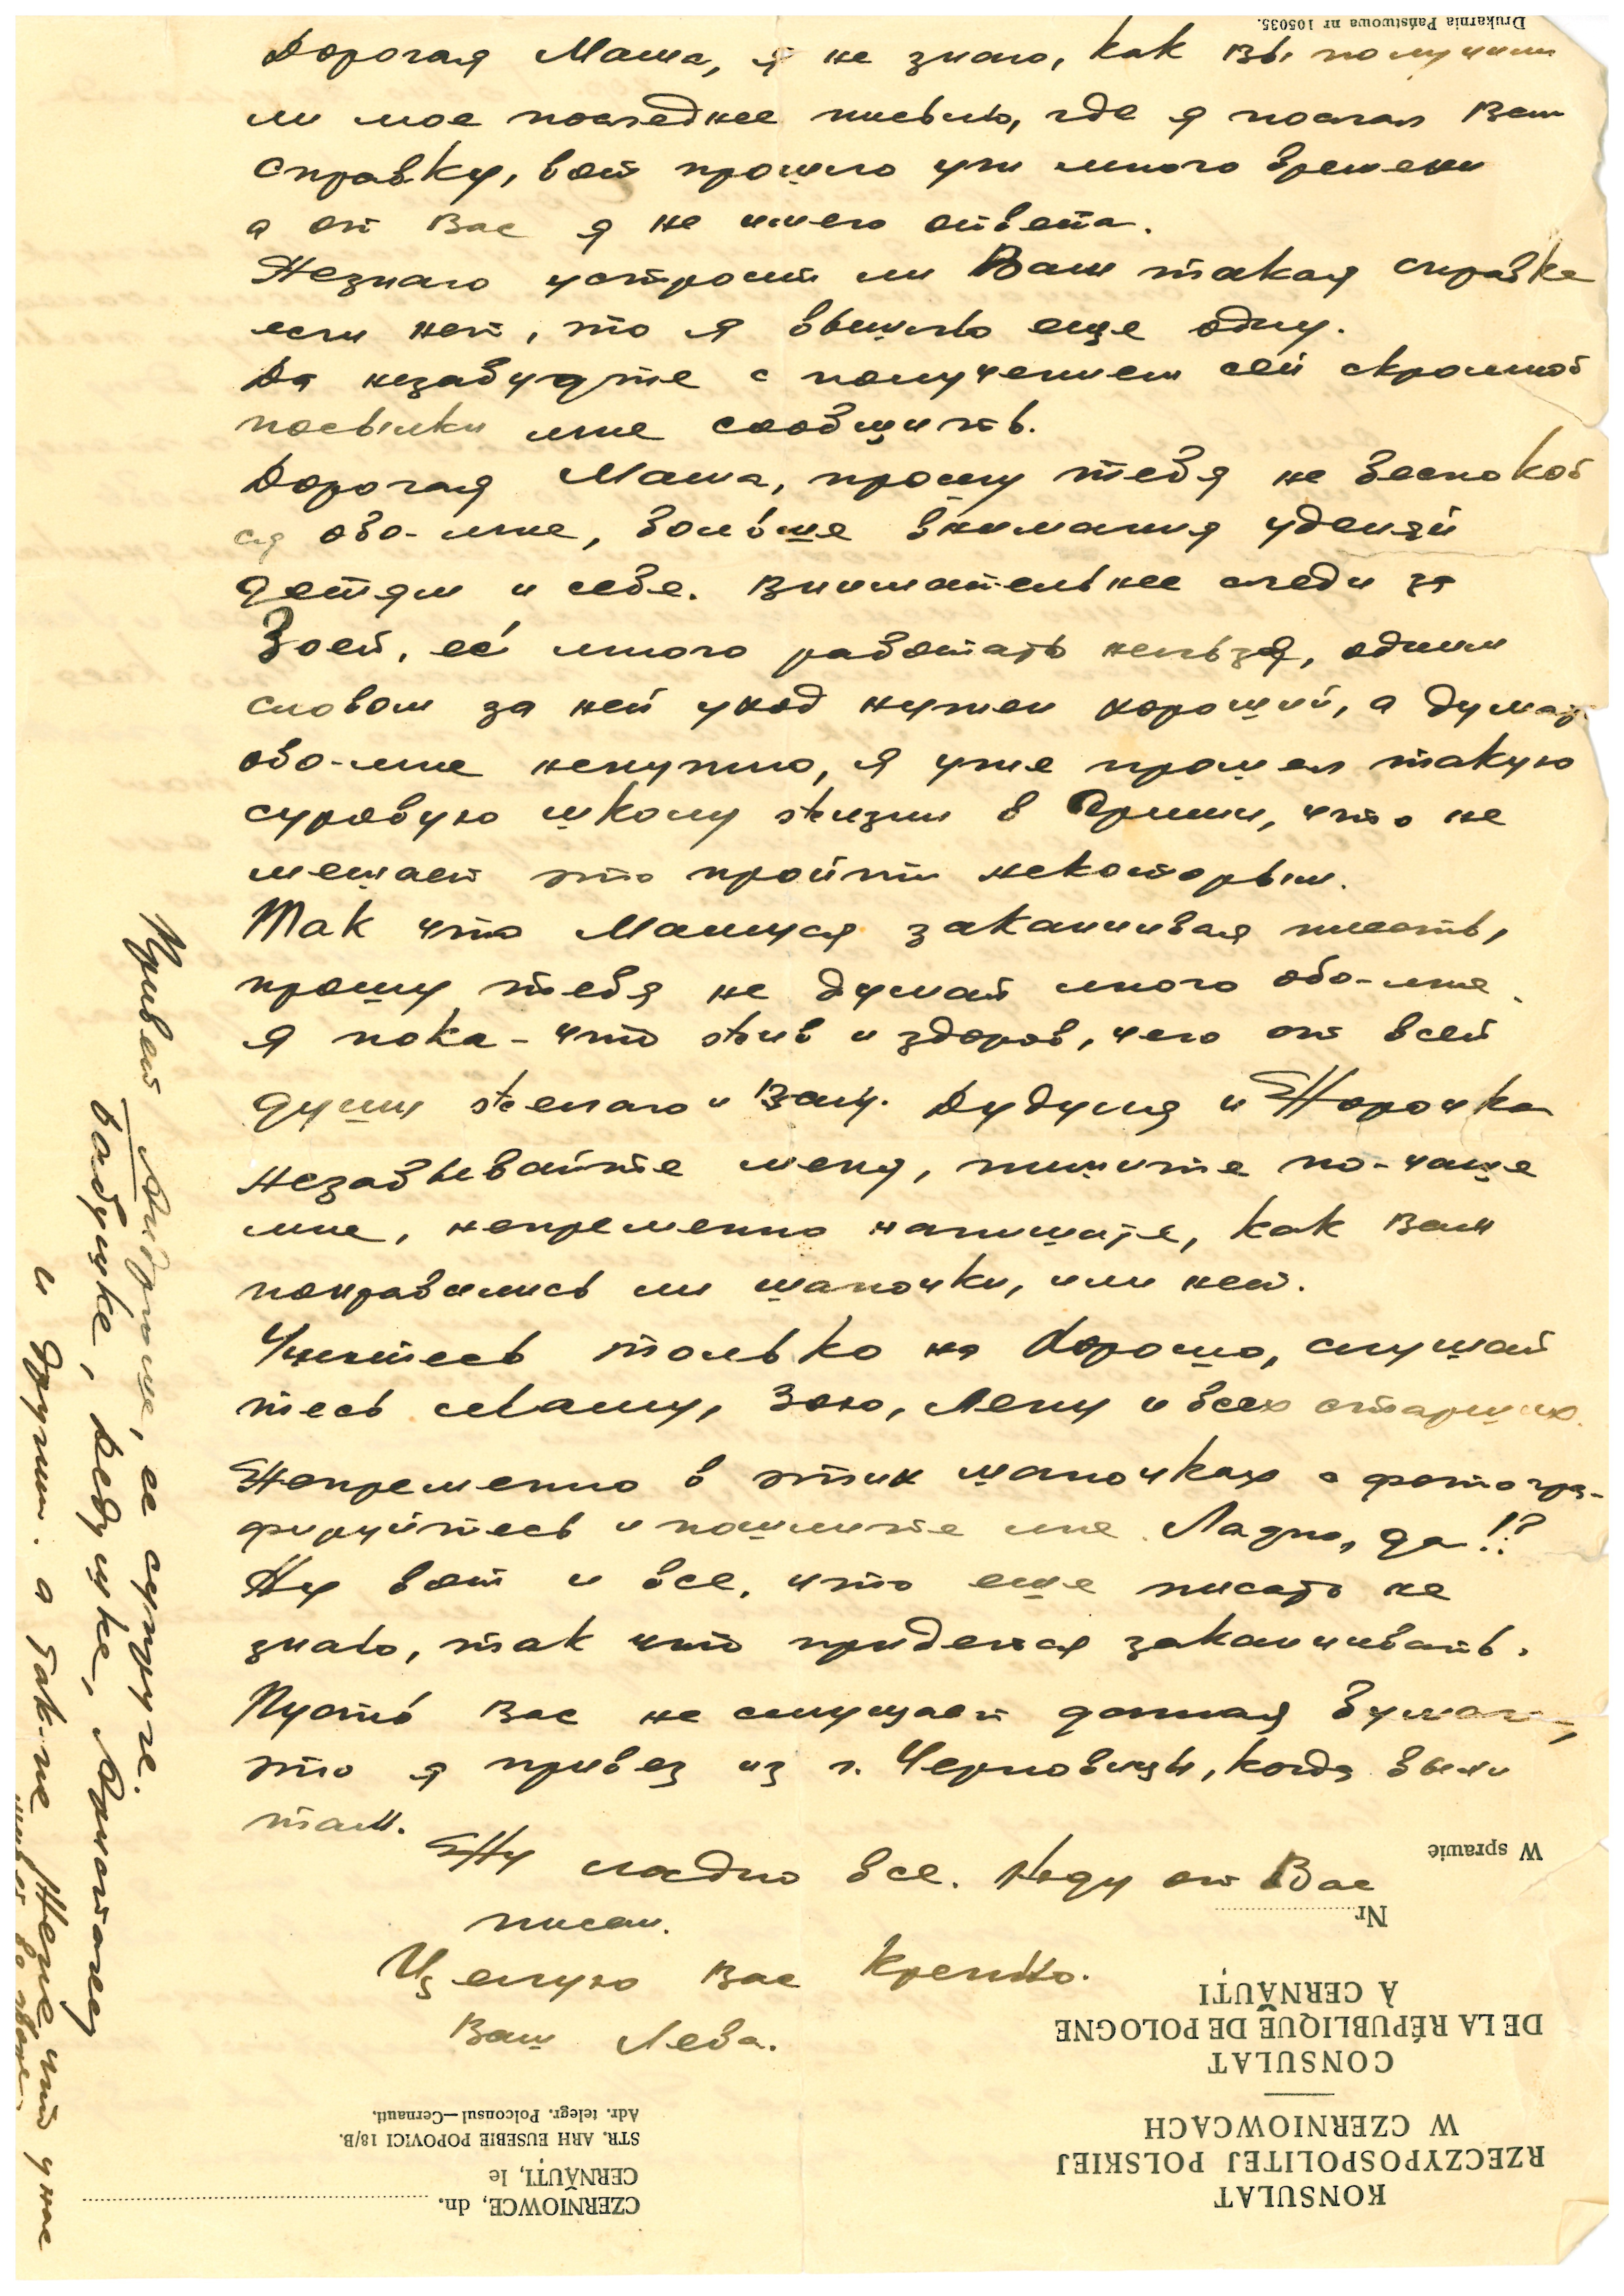 Drukarnia Państwowa nr 105035.
Дорогая Маша, я не знаю, как Вы получили
ли мое последнее письмо, где я послал Вам
справку, вот прошло уж много времени
а от Вас я не имею ответа.
Незнаю устроит ли Вам такая справка
если нет, то я вышлю еще одну.
Да незабудьте с получением сей скромной
посылки мне сообщить.
Дорогая Маша, прошу тебя не беспокой
ся обо-мне, больше внимания уделяй
детям и себе. Внимательнее следи за
Зоей, её много работать нельзя, одним
словом за ней уход нужен хороший, а думать
обо-мне ненужно, я уже прошел такую
суровую школу жизни в Армии, что не
мешает это пройти некоторым.
Так что Машуся заканчивая писать,
прошу тебя не думай много обо-мне.
я пока-что жив и здоров, чего от всей
души желаю и Вам. Дудуля и Норочка
незабывайте меня, пишите по-чаще
мне, непременно напишите, как Вам
понравились ли шапочки, или нет.
Учитесь только на хорошо, слушай
тесь Машу, Зою, Лену и всех старших.
Непременно в этих шапочках сфотогра-
фируйтесь и пошлите мне. Ладно, да!?
Ну вот и все, что еще писать не
знаю, так что придется заканчивать.
Пусть Вас не смущает данная бумага,
это я привез из г. Черновицы, когда были
там.
Ну ладно все. Жду от Вас
писем.
Целую Вас крепко.
Ваш Лева.
Привет Андрюше, ее супруге.
бабушке, дедушке,
и другим. а так-же Жене, что у нас
W sprawie
Nr
KONSULAT
RZECZYPOSPOLITEJ POLSKIEJ
W CZERNIOWCACH
CONSULAT
DE LA RÉPUBLIQUE DE POLOGNE
À CERNĂUȚI
CZERNIOWCE, dn.
CERNĂUȚI, le
STR. ARH EUSEBIE POPOVICI 18/B.
Adr. telegr. Polconsul—Cernauti.